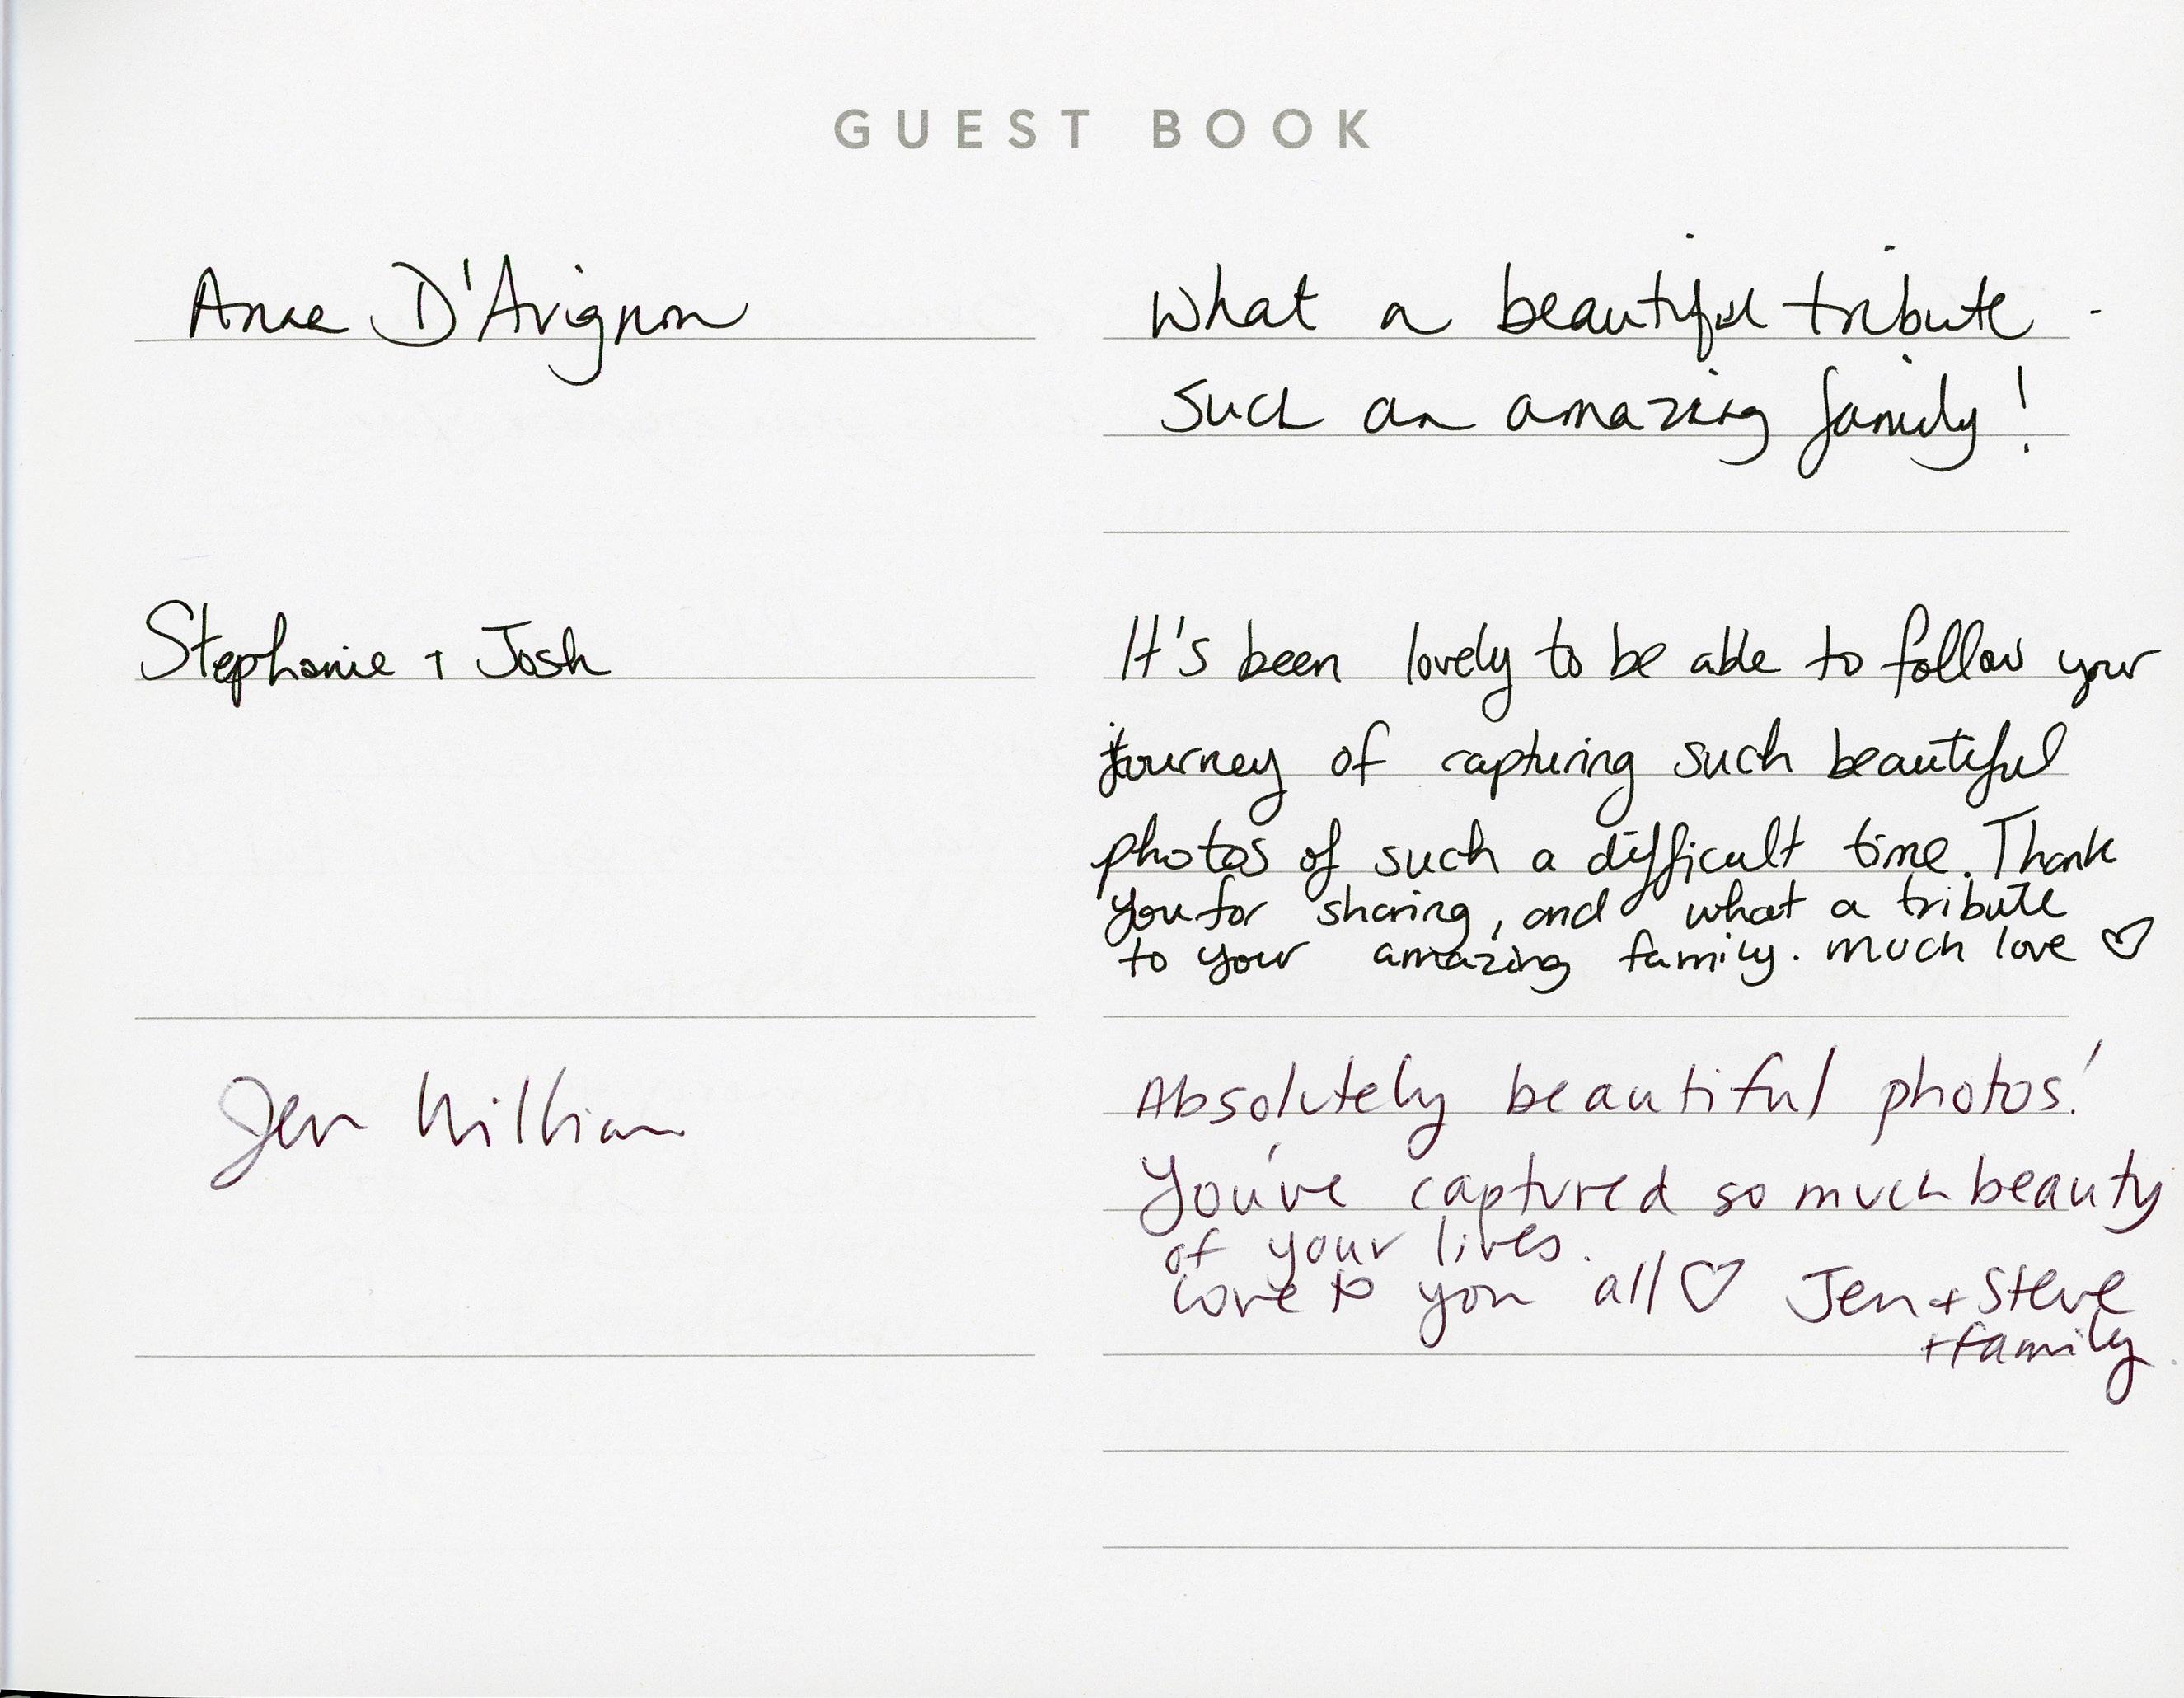 GUEST BOOK
Anne D'Avignon
What a beautiful tribute -
Such an amazing family!
Stephanie + Josh
It's been lovely to be able to follow your
journey of capturing such beautiful
photos of such a difficult time. Thank
you for sharing, and what a tribute
to your amazing family. much love ♡
Jen
Absolutely beautiful photos!
You've captured so much beauty
of your lives.
Love to you all ♡ Jen + Steve
+ family.